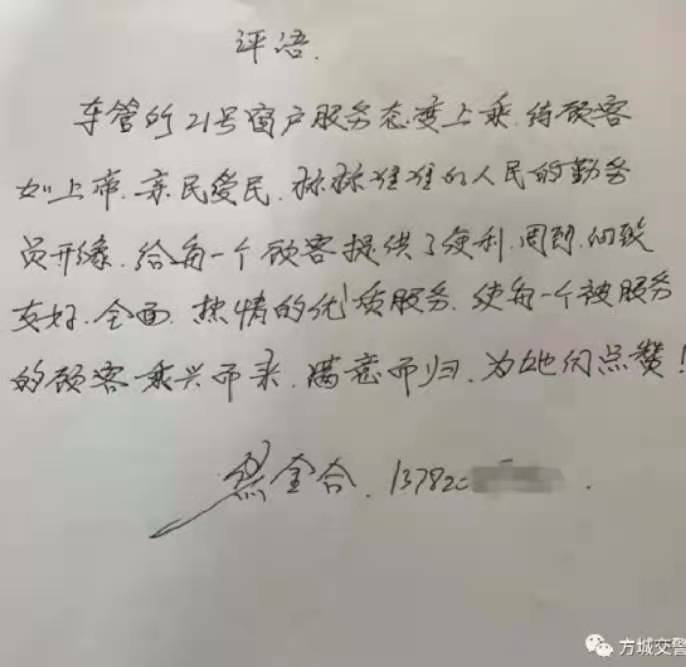 评语.
车管所21号窗户服务态度上乘.待顾客
如上帝.亲民爱民.标标准准的人民的勤务
员形像.给每一个顾客提供了便利.周到.细致
友好.全面.热情的优质服务.使每一个被服务
的顾客乘兴而来.满意而归.为她们点赞!
金合.13782
方城交警